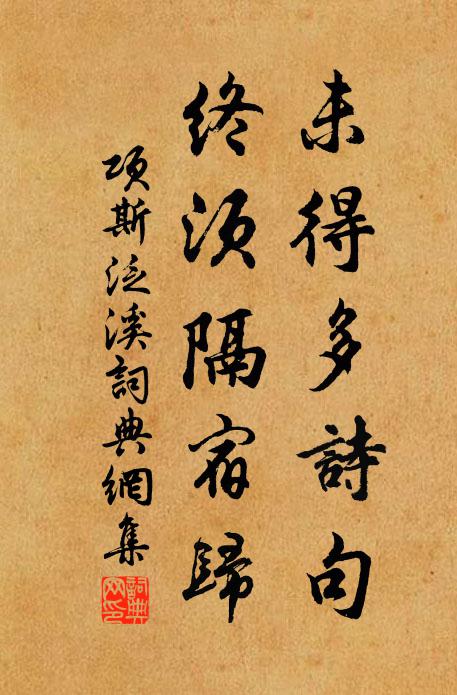 未得多詩句
終須隔宿歸
項斯泛溪詞典網集
詞典网印